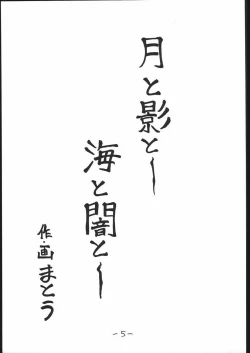 月と影と―
海と闇と―
作・画 まとう
-5-